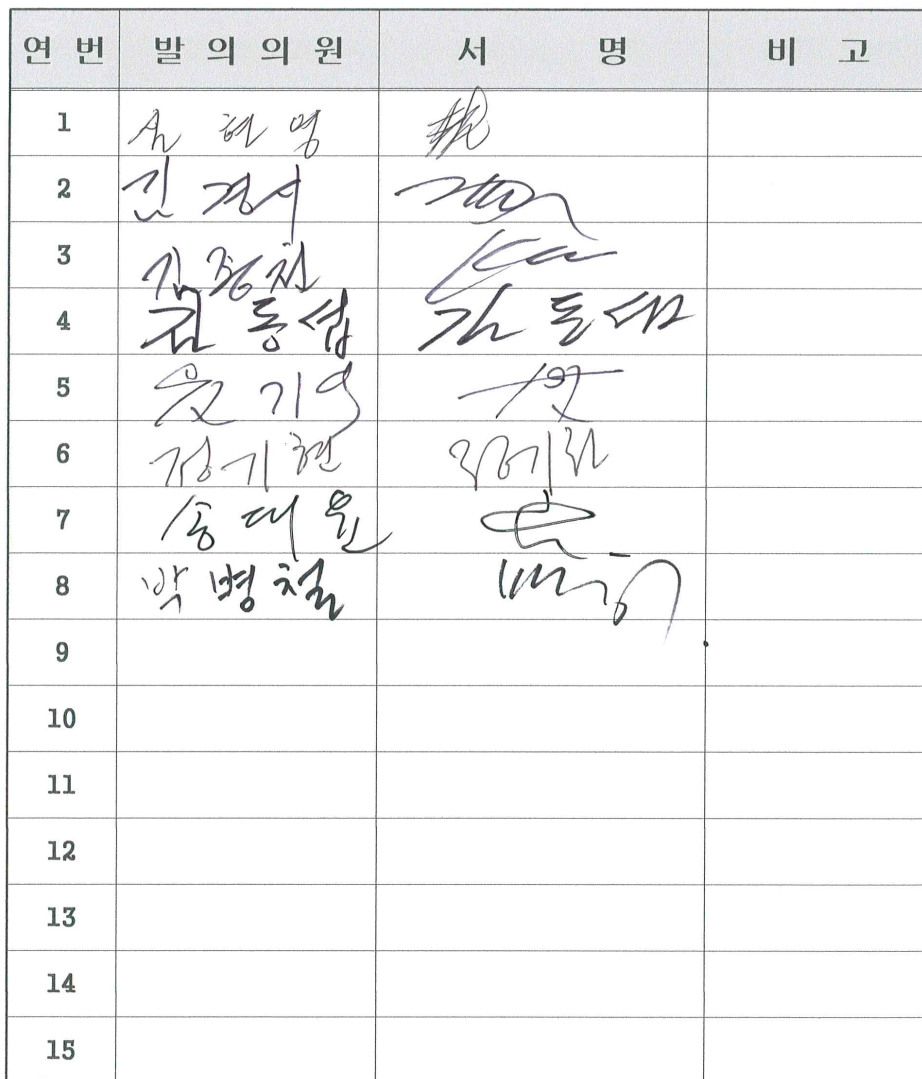 연 번 발 의 의 원 서 명 비 고
1 심 현 영
2 김 경 시
3 김 종 천
4 김 동 섭 김 동 섭
5 윤 기 식
6 정 기 현
7 송 대 윤
8 박 병 철
9
10
11
12
13
14
15